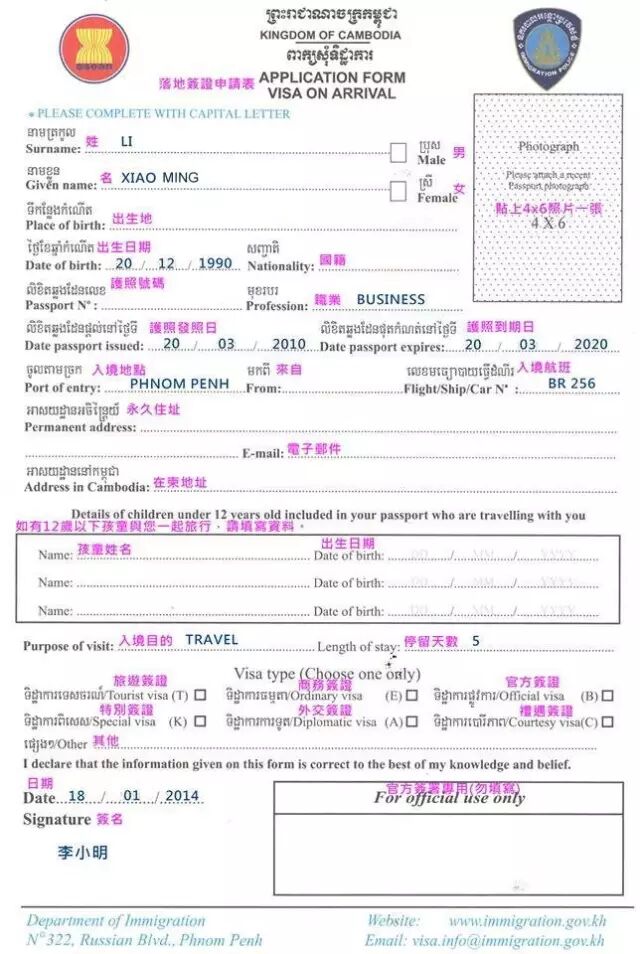 ព្រះរាជាណាចក្រកម្ពុជា
KINGDOM OF CAMBODIA
ពាក្យសុំទិដ្ឋាការ
落地簽證申請表 APPLICATION FORM
VISA ON ARRIVAL
asean
IMMIGRATION POLICE
* PLEASE COMPLETE WITH CAPITAL LETTER
នាមត្រកូល
Surname: 姓 LI
ប្រុស
Male 男
នាមខ្លួន
Given name: 名 XIAO MING
ស្រី
Female 女
Photograph
Please attach a recent
Passport photograph
貼上4x6照片一張
4 X 6
ទីកន្លែងកំណើត
Place of birth: 出生地
ថ្ងៃខែឆ្នាំកំណើត 出生日期 សញ្ជាតិ
Date of birth: 20 / 12 / 1990 Nationality: 國籍
លិខិតឆ្លងដែនលេខ 護照號碼 មុខរបរ
Passport N° : Profession: 職業 BUSINESS
លិខិតឆ្លងដែនផ្តល់នៅថ្ងៃទី 護照發照日 លិខិតឆ្លងដែនផុតកំណត់នៅថ្ងៃទី 護照到期日
Date passport issued: 20 / 03 / 2010 Date passport expires: 20 / 03 / 2020
ចូលតាមច្រក 入境地點 មកពី 來自 លេខមធ្យោបាយធ្វើដំណើរ 入境航班
Port of entry: PHNOM PENH From: Flight/Ship/Car N° : BR 256
អាសយដ្ឋានអចិន្ត្រៃយ៍ 永久住址
Permanent address:
E-mail: 電子郵件
អាសយដ្ឋាននៅកម្ពុជា
Address in Cambodia: 在柬地址
Details of children under 12 years old included in your passport who are travelling with you
如有12歲以下孩童與您一起旅行，請填寫資料。
Name: 孩童姓名 出生日期 Date of birth: DD / MM / YYYY
Name: Date of birth: DD / MM / YYYY
Name: Date of birth: DD / MM / YYYY
Purpose of visit: 入境目的 TRAVEL Length of stay: 停留天數 5
Visa type (Choose one only)
旅遊簽證 商務簽證 官方簽證
ទិដ្ឋាការទេសចរណ៍/Tourist visa (T) ទិដ្ឋាការធម្មតា/Ordinary visa (E) ទិដ្ឋាការផ្លូវការ/Official visa (B)
特別簽證 外交簽證 禮遇簽證
ទិដ្ឋាការពិសេស/Special visa (K) ទិដ្ឋាការការទូត/Diplomatic visa (A) ទិដ្ឋាការបើរាភាព/Courtesy visa(C)
ផ្សេងៗ/Other 其他
I declare that the information given on this form is correct to the best of my knowledge and belief.
日期
Date 18 / 01 / 2014
Signature 簽名
李小明
官方簽署專用(勿填寫)
For official use only
Department of Immigration
N°322, Russian Blvd., Phnom Penh
Website: www.immigration.gov.kh
Email: visa.info@immigration.gov.kh